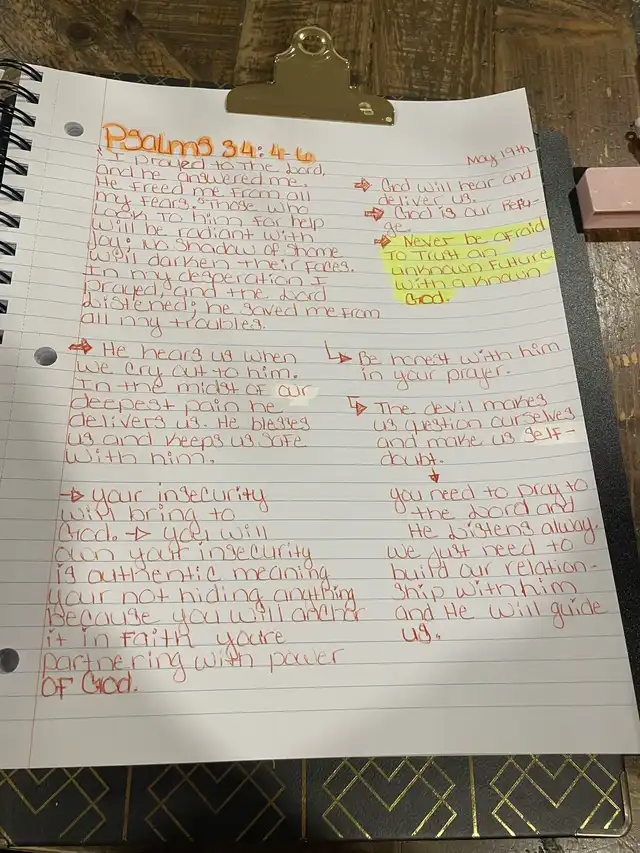 Psalms 34:4-6
May 19th
"I prayed to the Lord,
and he answered me.
He freed me from all
my fears. Those who
Look to him for help
will be radiant with
Joy; No shadow of shame
will darken their faces.
In my desperation I
prayed, and the Lord
Listened; he saved me from
all my troubles.
God will hear and
deliver us.
God is our Refu-
ge
Never be afraid
To Trust an
unknown Future
with a known
God.
He hears us when
we cry out to him.
In the midst of our
deepest pain he
delivers us. He blesses
us and keeps us safe
with him.
Be honest with him
in your prayer.
The devil makes
us question ourselves
and make us self-
doubt.
you need to pray to
the Lord and
He Listens alway.
we Just need to
build our relation-
ship with him
and He will guide
us.
your insecurity
will bring to
God. → you will
own your insecurity
is authentic meaning
your not hiding anything
Because you will anchor
it in faith youre
partnering with power
of God.